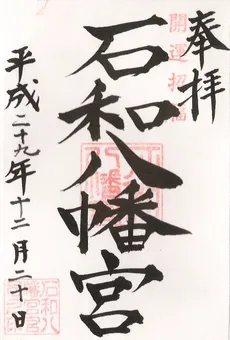 奉拝
開運招福
石和八幡宮
平成二十九年十二月二十日
石和八幡宮之印